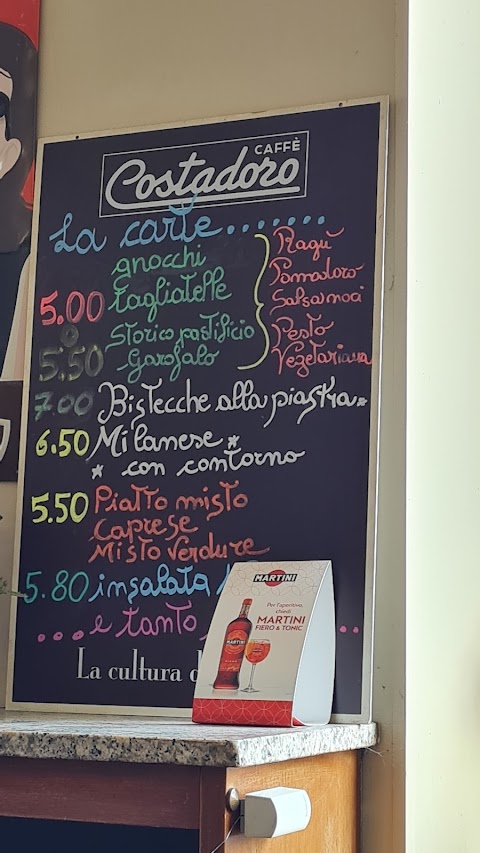 CAFFÈ
Costadoro
La carte.......
gnocchi
5.00 tagliatelle
o
5.50 Storico pastificio
Garofalo
Ragù
Pomodoro
Salsa noci
Pesto
Vegetariana
7.00 Bistecche alla piastra*
6.50 Milanese*
* con contorno
5.50 Piatto misto
Caprese
Misto verdure
5.80 insalata
...e tanto
La cultura d
MARTINI
Per l'aperitivo,
chiedi
MARTINI
FIERO & TONIC
MARTINI